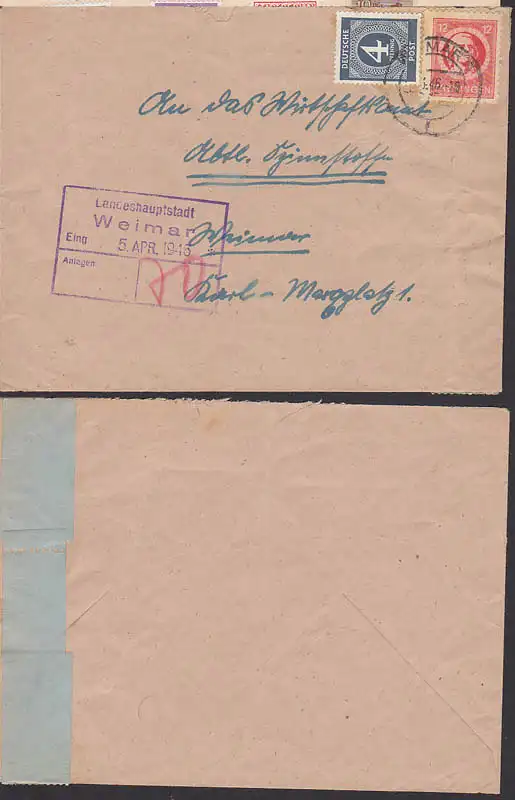 DEUTSCHE
POST
4
PFENNIG
12
12
An das Wirtschaftsamt
Abtl. Spinnstoffe
Weimar
Karl-Marxplatz 1.
Landeshauptstadt
Weimar
Eing 5. APR. 1946
Anlagen